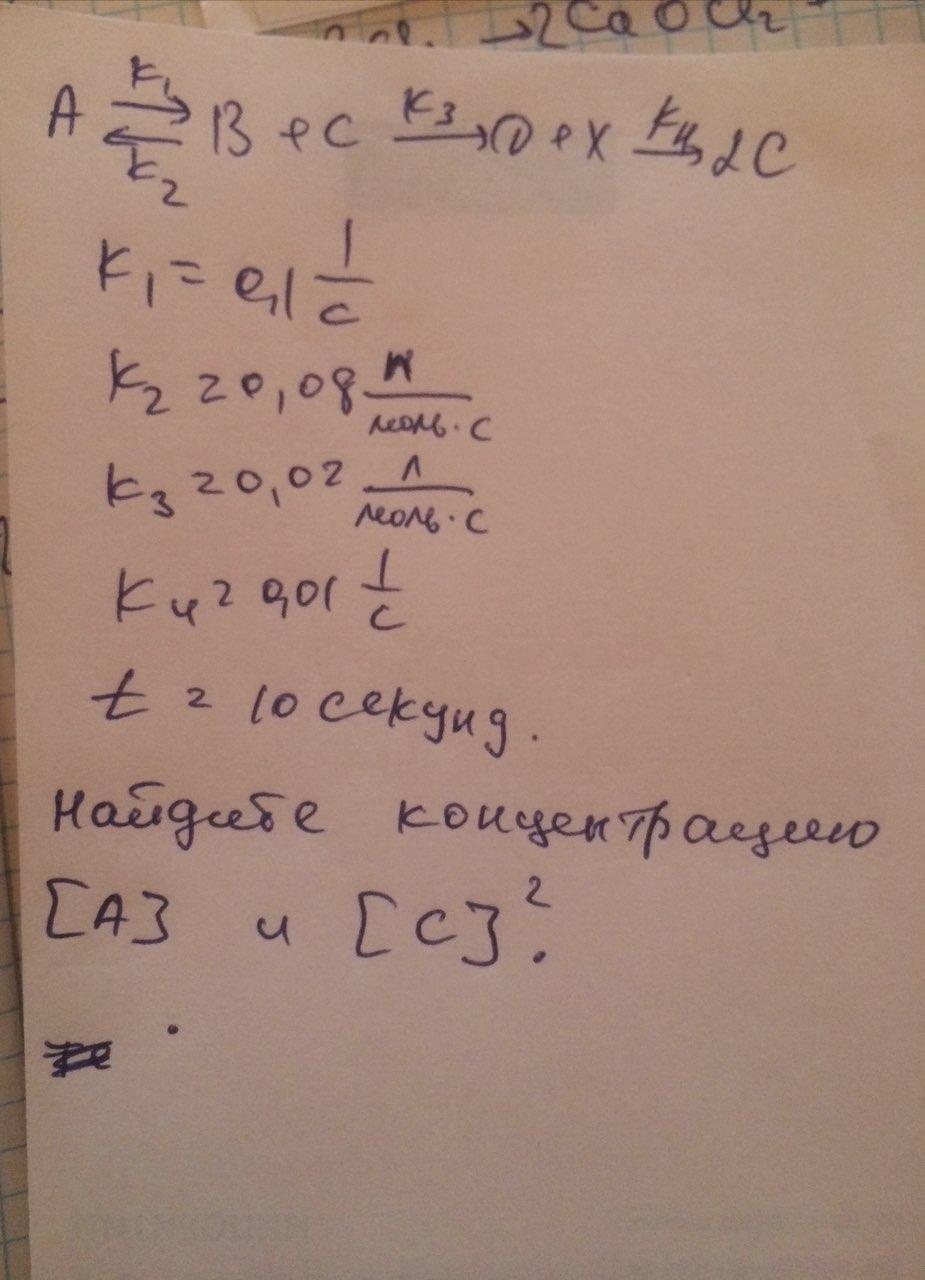 →2CaOCl₂
A ⇄ B + C → D + X → 2C
k₁ k₂ k₃ k₄
K₁ = 0,1 1/с
K₂ = 0,08 л/моль·с
K₃ = 0,02 л/моль·с
K₄ = 0,01 1/с
t = 10 секунд.
Найдите концентрацию
[A] и [C]².